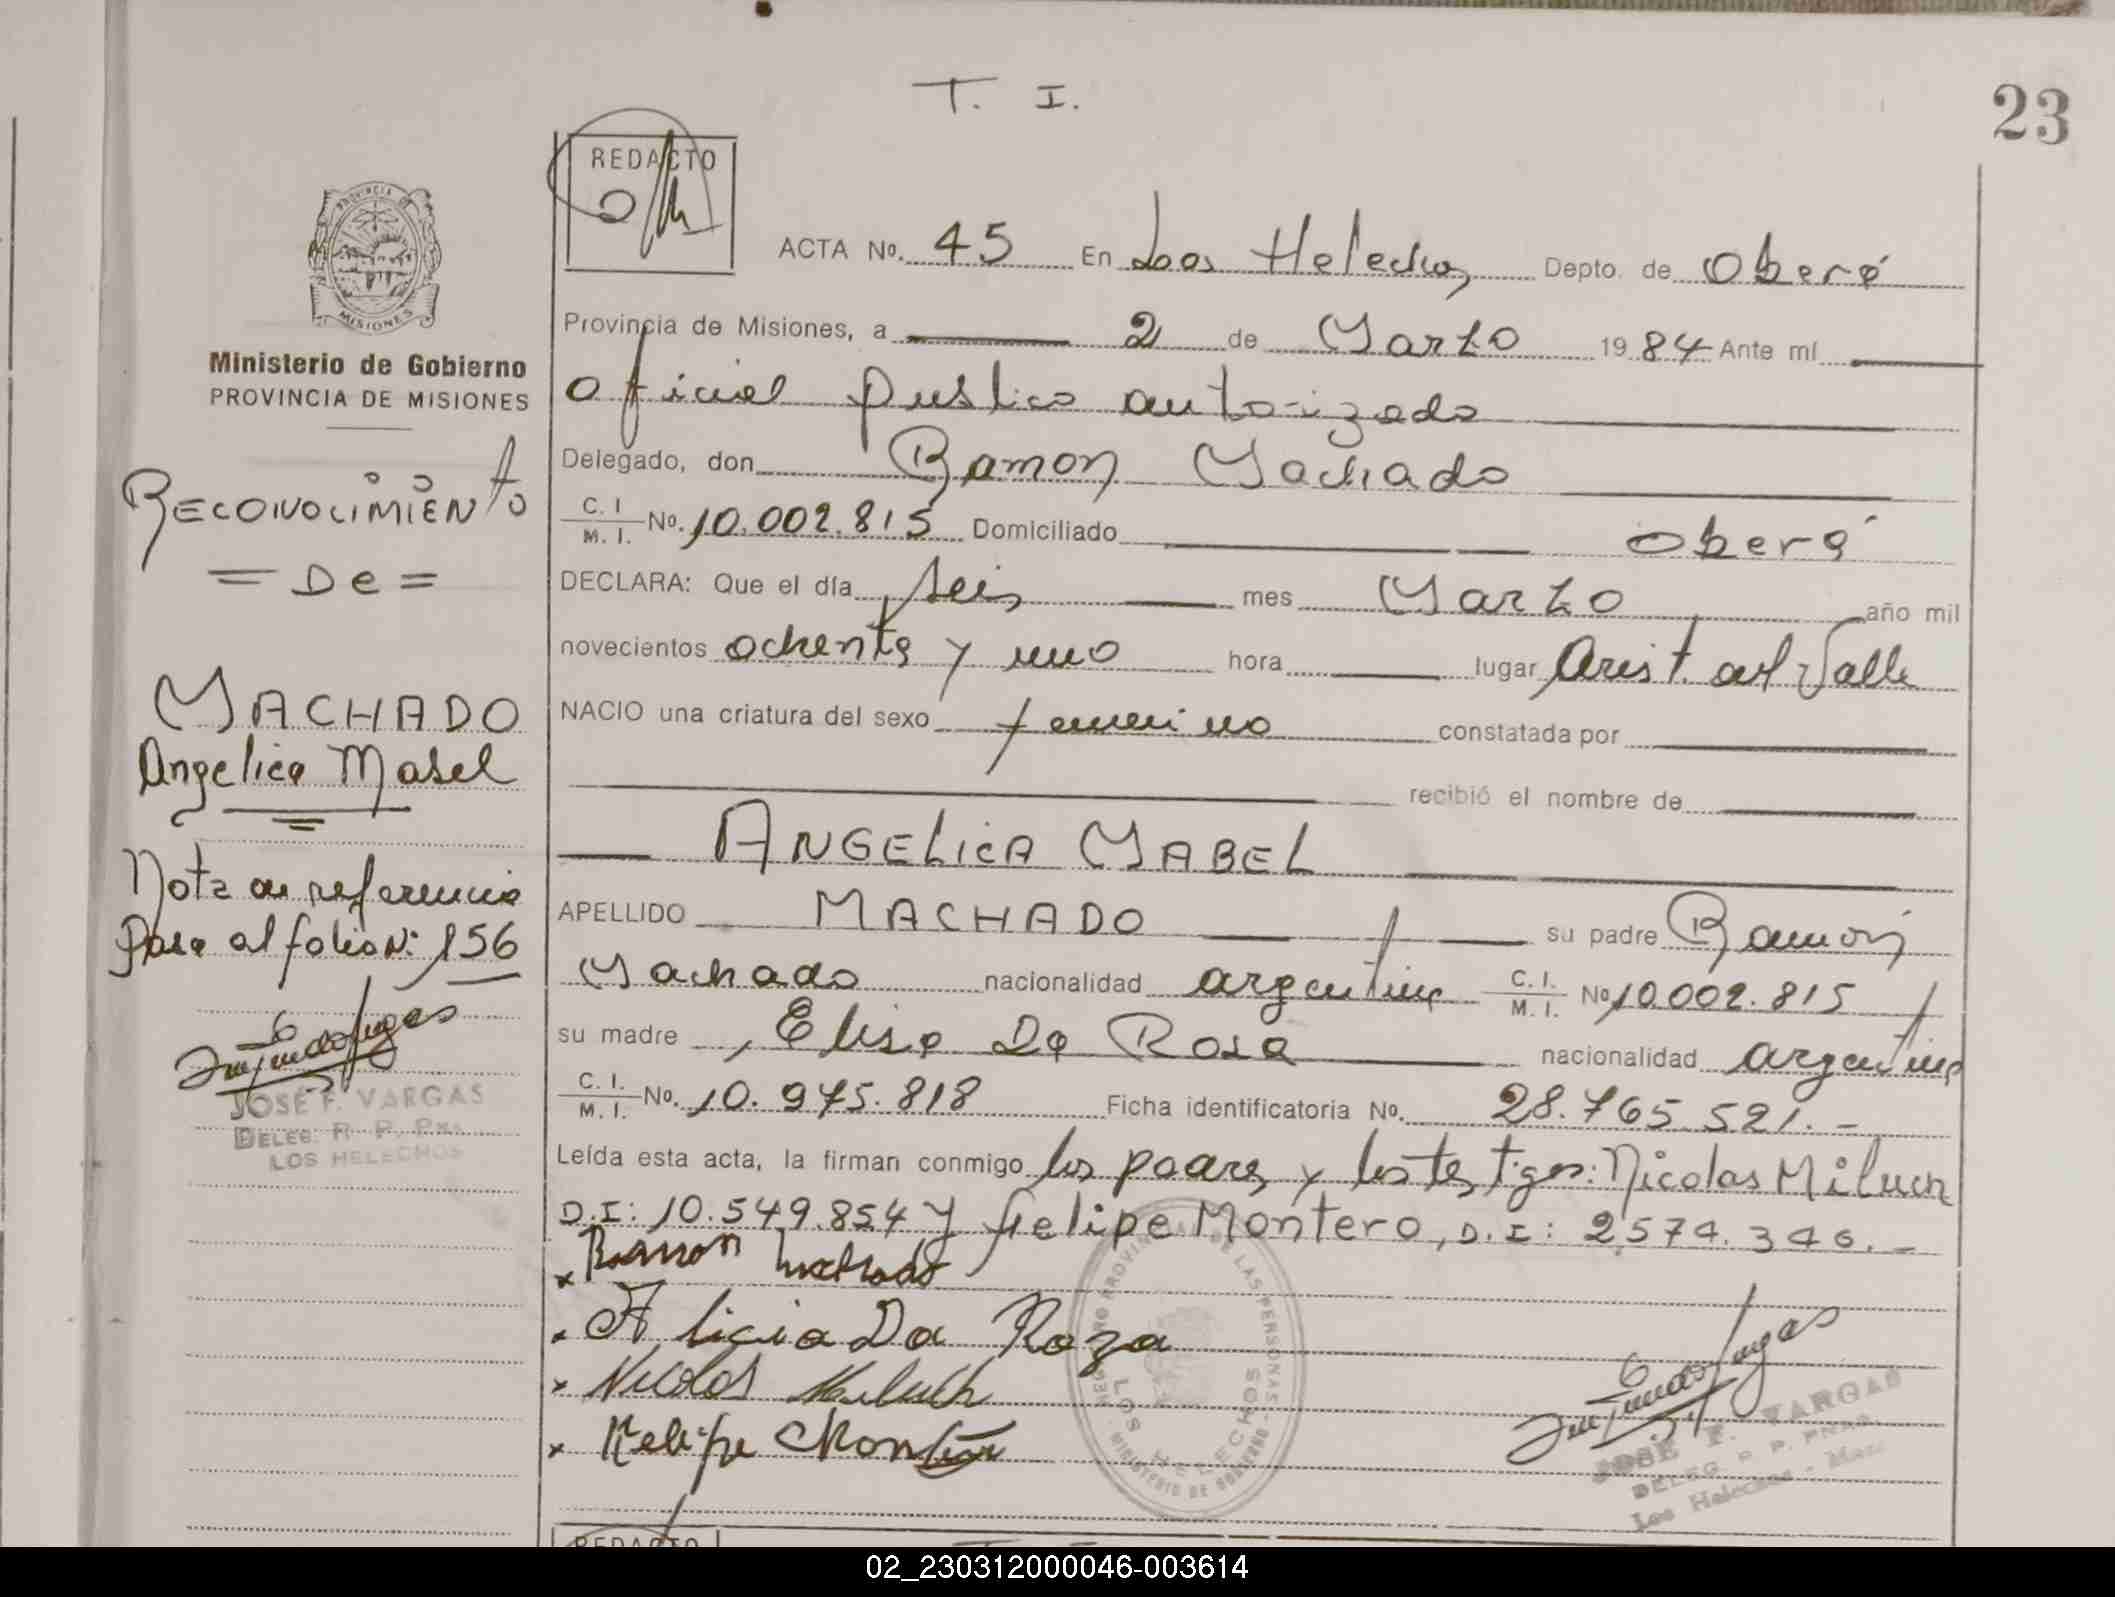 T. I.
23
REDACTO
PROVINCIA DE
MISIONES
ACTA No. 45 En Los Helechos, Depto. de Oberá
Provincia de Misiones, a 2 de Marzo 1984 Ante mí
Oficial Publico autorizado
Delegado, don Ramon Machado
C. I. / M. I. No. 10.002.815 Domiciliado Oberá
DECLARA: Que el día seis mes Marzo año mil
novecientos ochenta y uno hora lugar Arist. del Valle
NACIO una criatura del sexo femenino constatada por
recibió el nombre de
ANGELICA MABEL
APELLIDO MACHADO su padre Ramón
Machado nacionalidad argentina C. I. / M. I. No 10.002.815
su madre, Elisa Da Rosa nacionalidad argentina
C. I. / M. I. No. 10.975.818 Ficha identificatoria No. 28.765.521.-
Leída esta acta, la firman conmigo los padres y los testigos: Nicolas Miluch
D.I: 10.549.854 y Felipe Montero, D.I: 2.574.346.-
x Ramon Machado
x Alicia Da Roza
x Nicolas Miluch
x Felipe Montero
REGISTRO PROVINCIAL DE LAS PERSONAS
LOS HELECHOS
MINISTERIO DE GOBIERNO
JOSE F. VARGAS
DELEG. R. P. PNAS.
Los Helechos - Mnes.
Ministerio de Gobierno
PROVINCIA DE MISIONES
RECONOCIMIENTO
= De =
MACHADO
Angelica Mabel
Nota de referencia
Pasa al folio Nº 156
JOSÉ F. VARGAS
DELEG. R. P. Pnas.
LOS HELECHOS
REDACTO
02_230312000046-003614